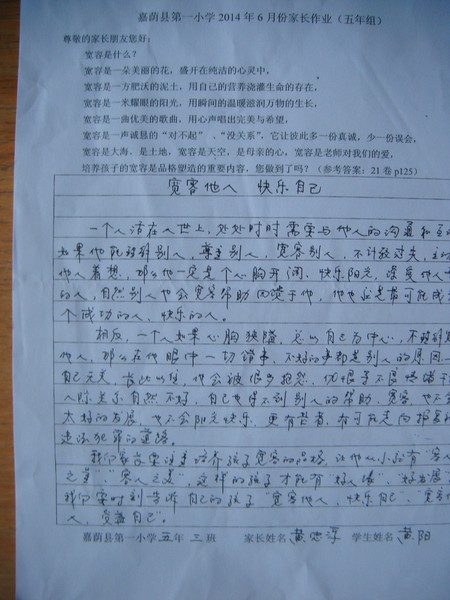 嘉荫县第一小学 2014 年 6 月份家长作业（五年组）
尊敬的家长朋友您好：
宽容是什么？
宽容是一朵美丽的花，盛开在纯洁的心灵中，
宽容是一方肥沃的泥土，用自己的营养浇灌生命的存在，
宽容是一米耀眼的阳光，用瞬间的温暖滋润万物的生长，
宽容是一曲优美的歌曲，用心声唱出完美与希望，
宽容是一声诚恳的“对不起”、“没关系”，它让彼此多一份真诚，少一份误会，
宽容是大海，是土地，宽容是天空，是母亲的心，宽容是老师对我们的爱，
培养孩子的宽容是品格塑造的重要内容，您做到了吗？（参考答案：21 卷 p125）
宽容他人 快乐自己
一个人活在人世上，处处时时需要与他人的沟通和
如果他能理解别人，尊重别人，宽容别人，不计较过失，主动
他人着想，那么他一定是个心胸开阔，快乐阳光，深受他人
的人，自然别人也会宽容帮助他，他也就是最可能成
个成功的人，快乐的人。
相反，一个人如果心胸狭隘，总以自己为中心，不理解
他人，那么在他眼中一切错事，不好的事都是别人的原因
自己无关，长此以往，他会被很多抱怨，仇恨等不良情绪
人际关系自然不好，自己也得不到别人的帮助，宽容，也不
太好的发展，也不会阳光快乐，更有甚者，有可能走向报
违法犯罪的道路。
我们家长要注意培养孩子宽容的品格，让他从小就有“容人
之量”，“容人之美”，这样的孩子才能有“好人缘”，“好发展”
我们要时刻告诉自己的孩子“宽容他人，快乐自己”，“宽容
人，受益自己”。
嘉荫县第一小学五年 三 班 家长姓名 黄 学生姓名 黄阳